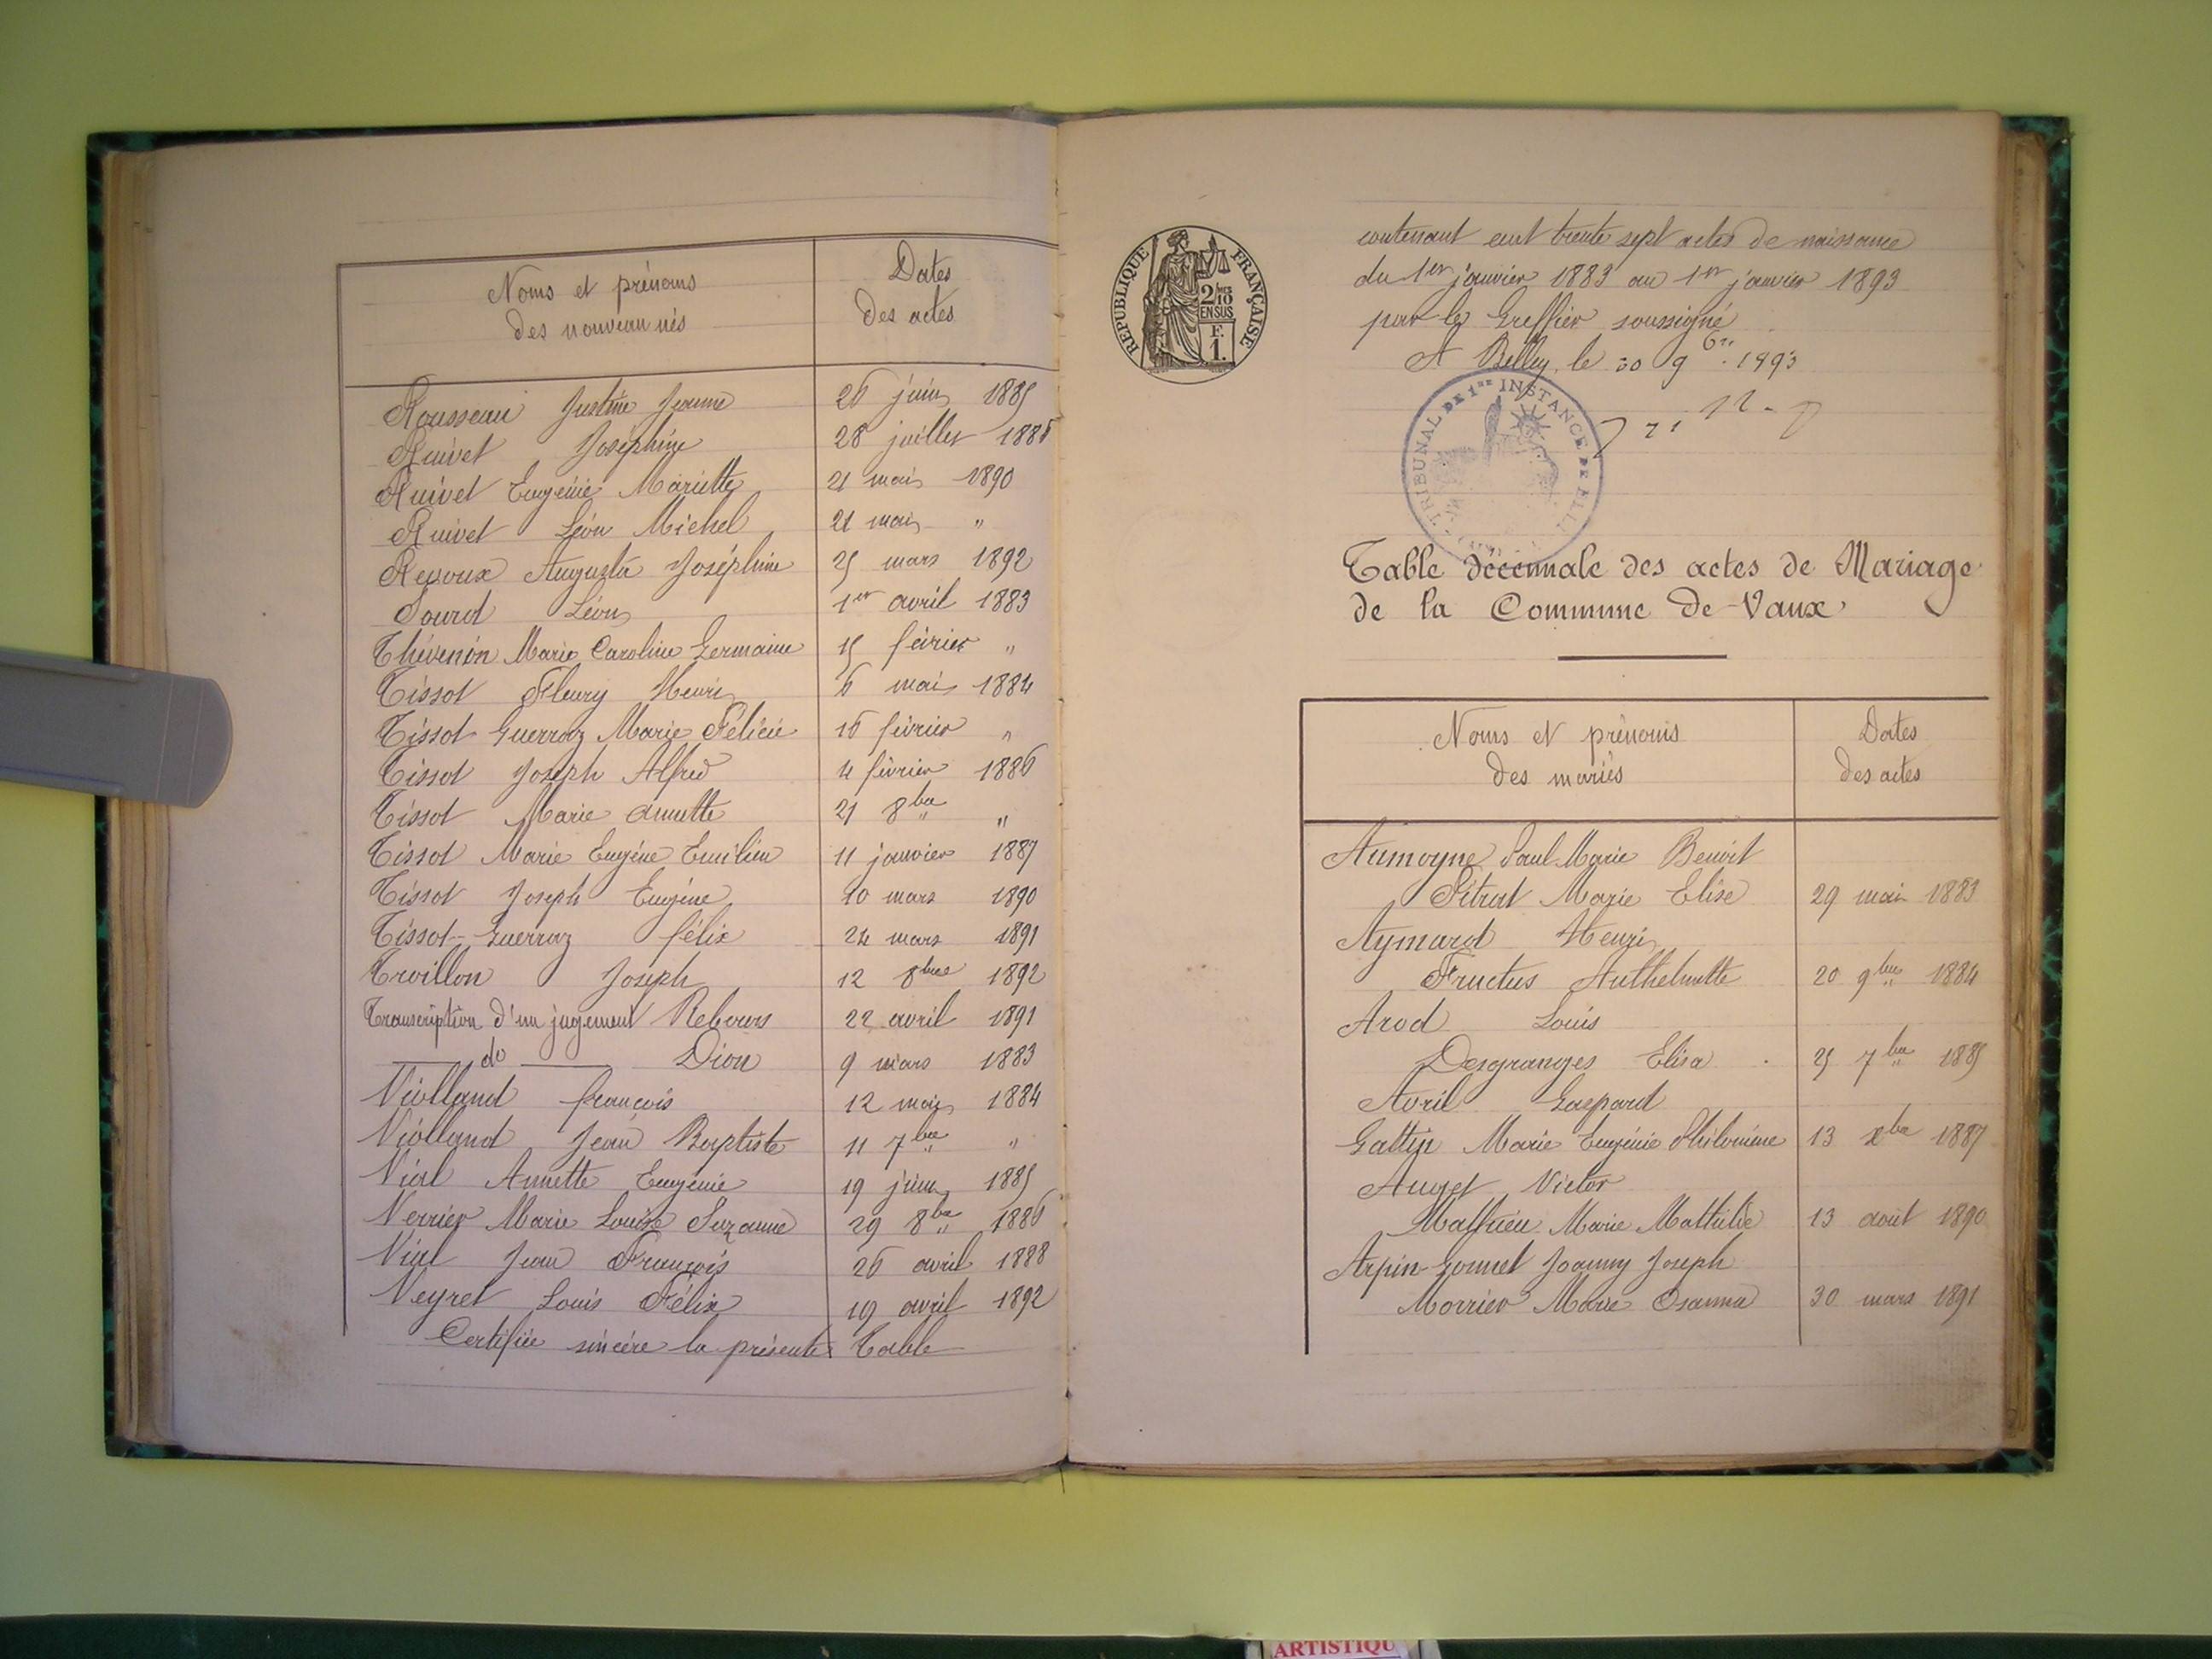 Noms et prénoms
des nouveau nés
Dates
des actes
Rousseau Justine Jeanne 26 juin 1885
Ruivet Joséphine 28 juillet 1888
Ruivet Eugénie Mariette 21 mai 1890
Ruivet Léon Michel 21 mai "
Revoux Augusta Joséphine 25 mars 1892
Sourd Léon 1er avril 1883
Thévenon Marie Caroline Germaine 15 février "
Tissot Fleury Henri 6 mai 1884
Tissot Guerraz Marie Félicie 16 février "
Tissot Joseph Alfred 4 février 1886
Tissot Marie Annette 21 8bre "
Tissot Marie Eugène Emilien 11 janvier 1887
Tissot Joseph Eugène 10 mars 1890
Tissot-Guerraz félix 24 mars 1891
Trvillon Joseph 12 8bre 1892
Transcription d'un jugement Rebours 22 avril 1891
do Dion 9 mars 1883
Violland françois 12 mai 1884
Violland Jean Baptiste 11 7bre "
Vial Annette Eugénie 19 juin 1885
Verrier Marie Louise Suzanne 29 8bre 1886
Vial Jean François 26 avril 1888
Veyret Louis Félix 19 avril 1892
Certifiée sincère la présente Table
RÉPUBLIQUE FRANÇAISE
2/10
EN SUS
F.
1.
contenant cent trente sept actes de naissance
du 1er janvier 1883 au 1er janvier 1893
par le Greffier soussigné
A Belley, le 30 9bre 1893
TRIBUNAL DE 1RE INSTANCE DE
Table décennale des actes de Mariage
de la Commune de Vaux
Noms et prénoms
des mariés
Dates
des actes
Aumoyne Paul Marie Benoit
Pitrat Marie Elise 29 mai 1883
Aymard Henri
Fructus Anthelmette 20 9bre 1884
Arod Louis
Desgranges Elisa 25 7bre 1885
Avril Gaspard
Gattin Marie Eugénie Philomène 13 xbre 1887
Auger Victor
Mathieu Marie Mathilde 13 août 1890
Arpin-Gonnet Joanny Joseph
Morrier Marie Osanna 30 mars 1891
ARTISTIQU